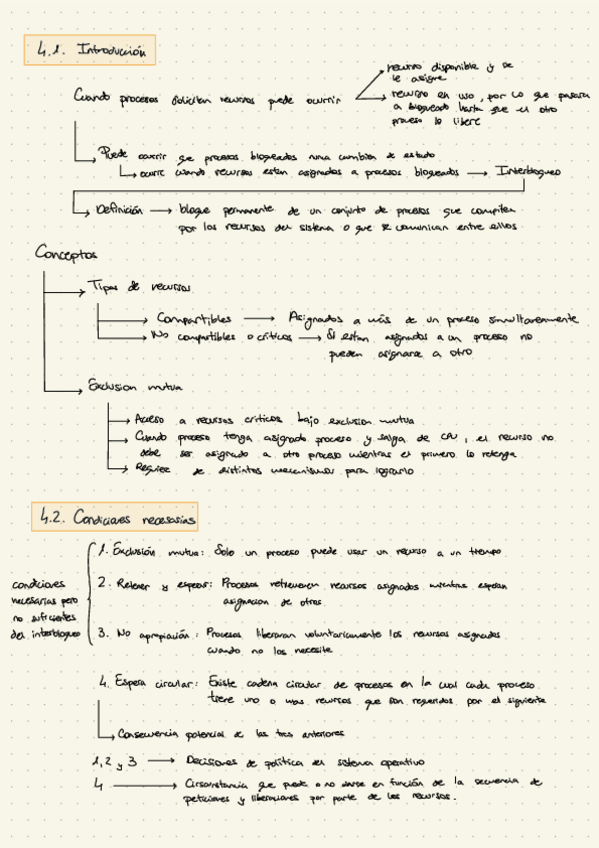 4.1. Introducción
Cuando procesos solicitan recursos puede ocurrir
recurso disponible y se
le asigne
recurso en uso, por lo que pasara
a bloqueado hasta que el otro
proceso lo libere
Puede ocurrir que procesos bloqueados nunca cambien de estado
ocurre cuando recursos estan asignados a procesos bloqueados → Interbloqueo
Definición → bloqueo permanente de un conjunto de procesos que compiten
por los recursos del sistema o que se comunican entre ellos
Conceptos
Tipos de recursos
Compartibles → Asignados a más de un proceso simultaneamente
No compartibles o críticos → Si estan asignados a un proceso no
pueden asignarse a otro
Exclusion mutua
Acceso a recursos criticos bajo exclusion mutua
Cuando proceso tenga asignado proceso y salga de CPU, el recurso no
debe ser asignado a otro proceso mientras el primero lo retenga
Requiere de distintos mecanismos para lograrlo
4.2. Condiciones necesarias
condiciones
necesarias pero
no suficientes
del interbloqueo
1. Exclusión mutua: Solo un proceso puede usar un recurso a un tiempo
2. Retener y esperar: Procesos retienen recursos asignados mientras esperan
asignacion de otros
3. No apropiación: Procesos liberaran voluntariamente los recursos asignados
cuando no los necesite
4. Espera circular: Existe cadena circular de procesos en la cual cada proceso
tiene uno o mas recursos que son requeridos por el siguiente
Consecuencia potencial de las tres anteriores
1, 2 y 3 → Decisiones de política del sistema operativo
4 → Circunstancia que puede o no darse en función de la secuencia de
peticiones y liberaciones por parte de los recursos.